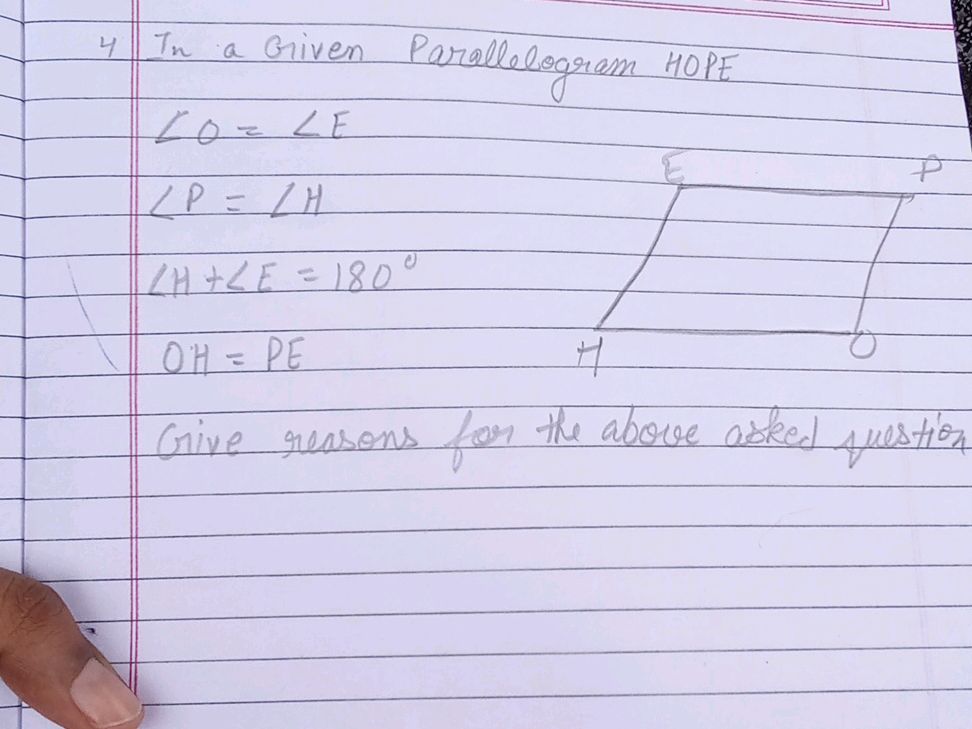 4 In a Given Parallelogram HOPE
∠O = ∠E
∠P = ∠H
∠H + ∠E = 180°
OH = PE
E P
H O
Give reasons for the above asked question